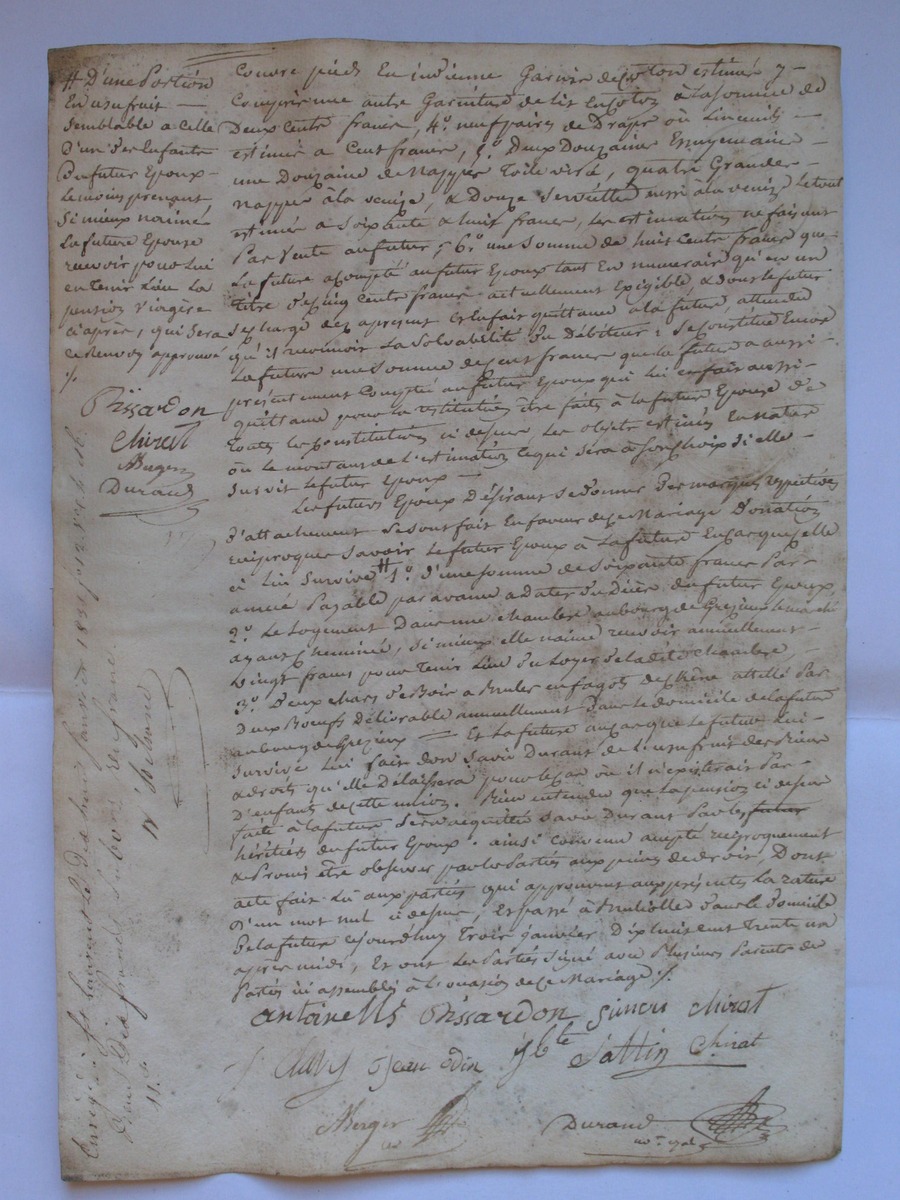 # D'une Portion
En usufruit —
Semblable a Celle
D'un des Enfants
Du futur Epoux
Le moins prenant
Si mieux n'aime
La future Epouse
recevoir pour Lui
en tenir Lieu La
pension viagère
ci après, qui sera
ce Renvoy approuvé
./.
Pissardon
Chirat
Berger
Durand
Couvre pieds En indienne Garnie de Coton estimés y
Compris une autre Garniture de lit En Coton à la Somme de
Deux Cents francs, 4°. neuf paires de Draps ou Linceuils
estimés a Cent francs, 5°. Deux Douzaines Essuyemains
une Douzaine de Nappes Toile , quatre Grandes
Nappes à la venise, & Douze Serviettes aussi à la venise Le tout
estimés a Soixante & huit francs, Les estimations ne faisant
Pas Vente au futur, 6°. une Somme de huit Cents francs que
La future a Compté au futur Epoux tant En numeraire qu'en un
titre de cinq Cents francs actuellement Exigible, & dont le futur
Se charge des apresent & En fait quittance à la future, attendu
qu'il reconnoit La Solvabilité du Débiteur : Se Constitue Encore
La future une Somme de Cent francs que la future a aussi
présentement Compté au futur Epoux qui Lui en fait aussi
quittance pour la restitution être faite à la future Epouse de
toutes les Constitutions ci dessus Les objets estimés En nature
ou Le montant de L'estimation Ce qui sera à Son choix Si elle
Survit Le futur Epoux —
Les futurs Epoux Désirant Se donner Des marques respectives
d'attachement Se Sont fait En faveur de Ce Mariage Donation
réciproque Savoir Le futur Epoux à La future En Cas qu'elle
à Lui Survive # 1°. D'une Somme de Soixante francs Par
année Payable par avance a dater du Décès du futur Epoux,
2°. Le Logement Dans une Chambre au bourg de Grezieux
ayant Cheminée, Si mieux elle n'aime recevoir annuellement
Vingt francs pour Tenir Lieu Du Loyer de la dite Chambre
3°. Deux Chars de Bois a Bruler en fagots de Chêne attellé Par
Deux Boeufs Délivrable annuellement Dans le domicile de la future
au bourg de Grezieux — Et La future au Cas que Le futur Lui
Survive Lui fait Don Sa vie Durant de L'usufruit des Biens
& droits qu'elle Délaissera pour le Cas où il n'existerait Pas
D'enfants de Cette union. Bien entendu que La pension ci dessus
faite à la future Sera acquittée Sa vie Durant Par les futur
héritiers du futur Epoux. ainsi Convenu accepté réciproquement
& Promis être observer par les Parties aux peines de droit, Dont
acte fait Lu aux parties qui approuvent aux présentes La rature
D'un mot nul ci dessus, Et passé à Bruliolle Dans Le Domicile
De la future ce jourd'huy Trois janvier Dixhuit cent Trente un
après midi, Et ont Les Parties Signé avec Plusieurs Parents des
Parties ici assemblés à L'ocasion de Ce Mariage ./.
antoinette Pissardon Simeon Chirat
Jean Odin Sbte Sattin Chirat
Berger Durand
Enregistré à St Laurent le dix huit janvier 1831 f° 12 V°
Reçu Dix francs
11. «